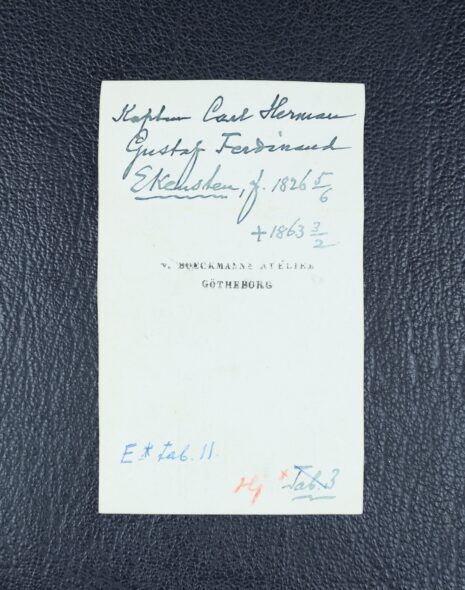 Kapten Carl Herman
Gustaf Ferdinand
Ekensten, f. 1826 5/6
+ 1863 3/2
v. BOECKMANNS ATELIER
GÖTHEBORG
E* tab. 11.
* Tab. 3